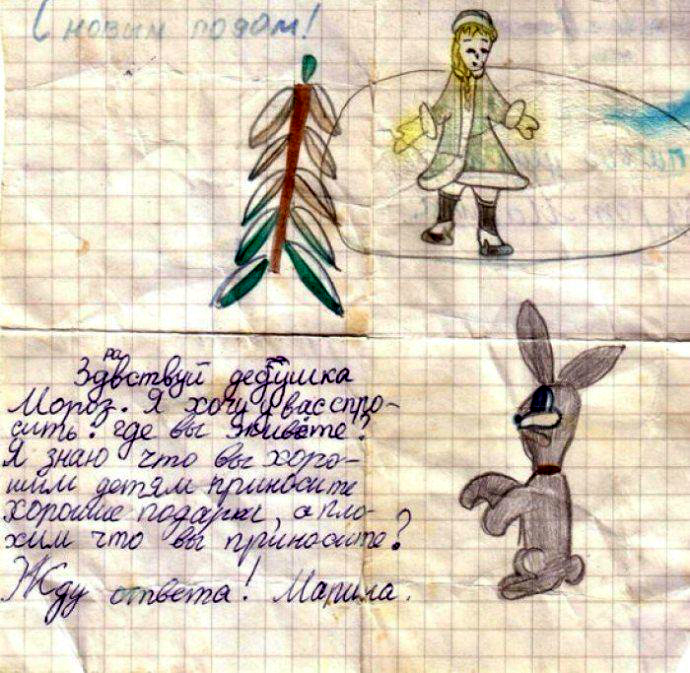 С новим годам!
Здравствуй дедушка
Мороз. Я хочу у вас спро-
сить: где вы живёте?
Я знаю что вы хоро-
шим детям приносите
хорошие подарки, а пло-
хим что вы приносите?
Жду ответа! Марина.